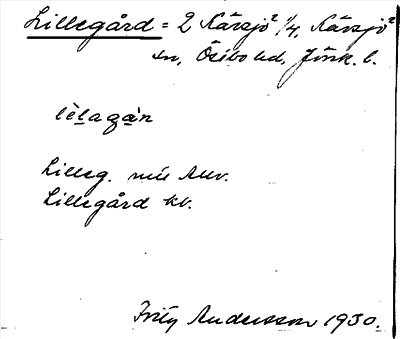 Lillegård = 2 Kävsjö² 1/4, Kävsjö²
sn, Östbo hd, Jönk. l.
lèlagán
Lilleg. mil. Anv.
Lillegård kv.
Fritz Andersson 1930.